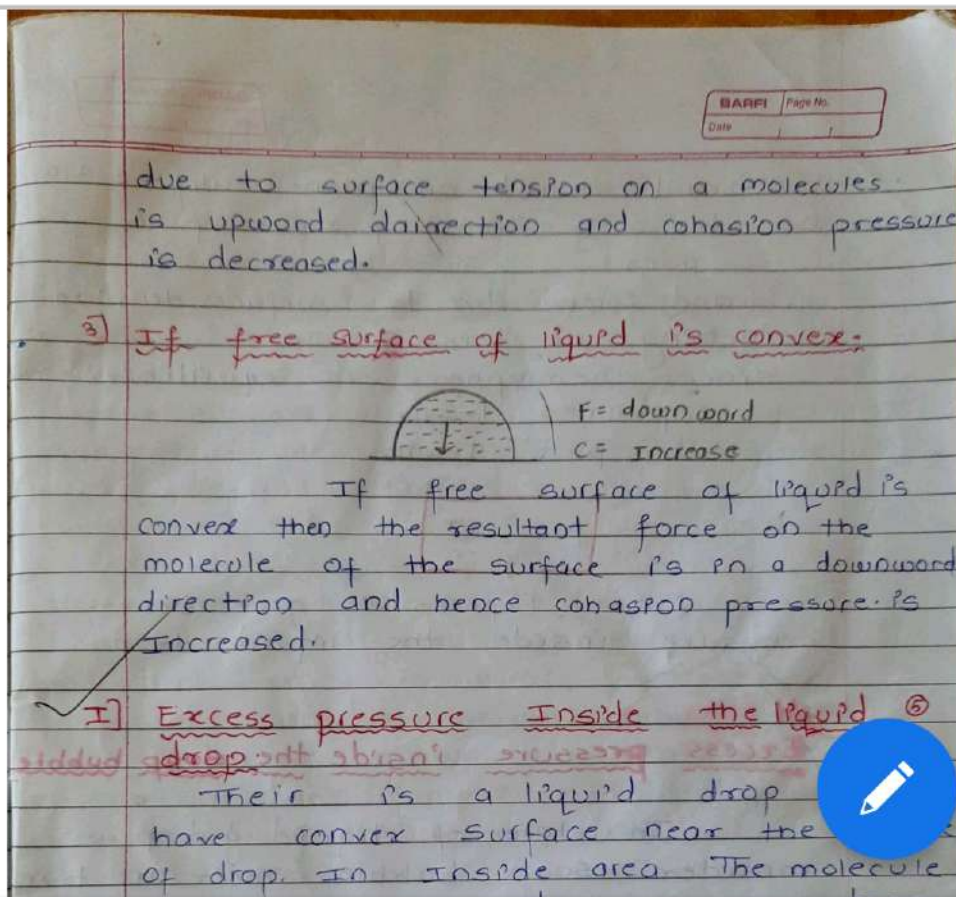 BARFI Page No.
Date
due to surface tension on a molecules
is upword dairection and cohasion pressure
is decreased.
3] If free surface of liquid is convex:
F = down word
C = Increase
If free surface of liquid is
convex then the resultant force on the
molecule of the surface is in a downword
direction and hence cohasion pressure. is
Increased.
I] Excess pressure Inside the liquid ⑤
drop
Their is a liquid drop
have convex surface near the
of drop. In Inside area The molecule